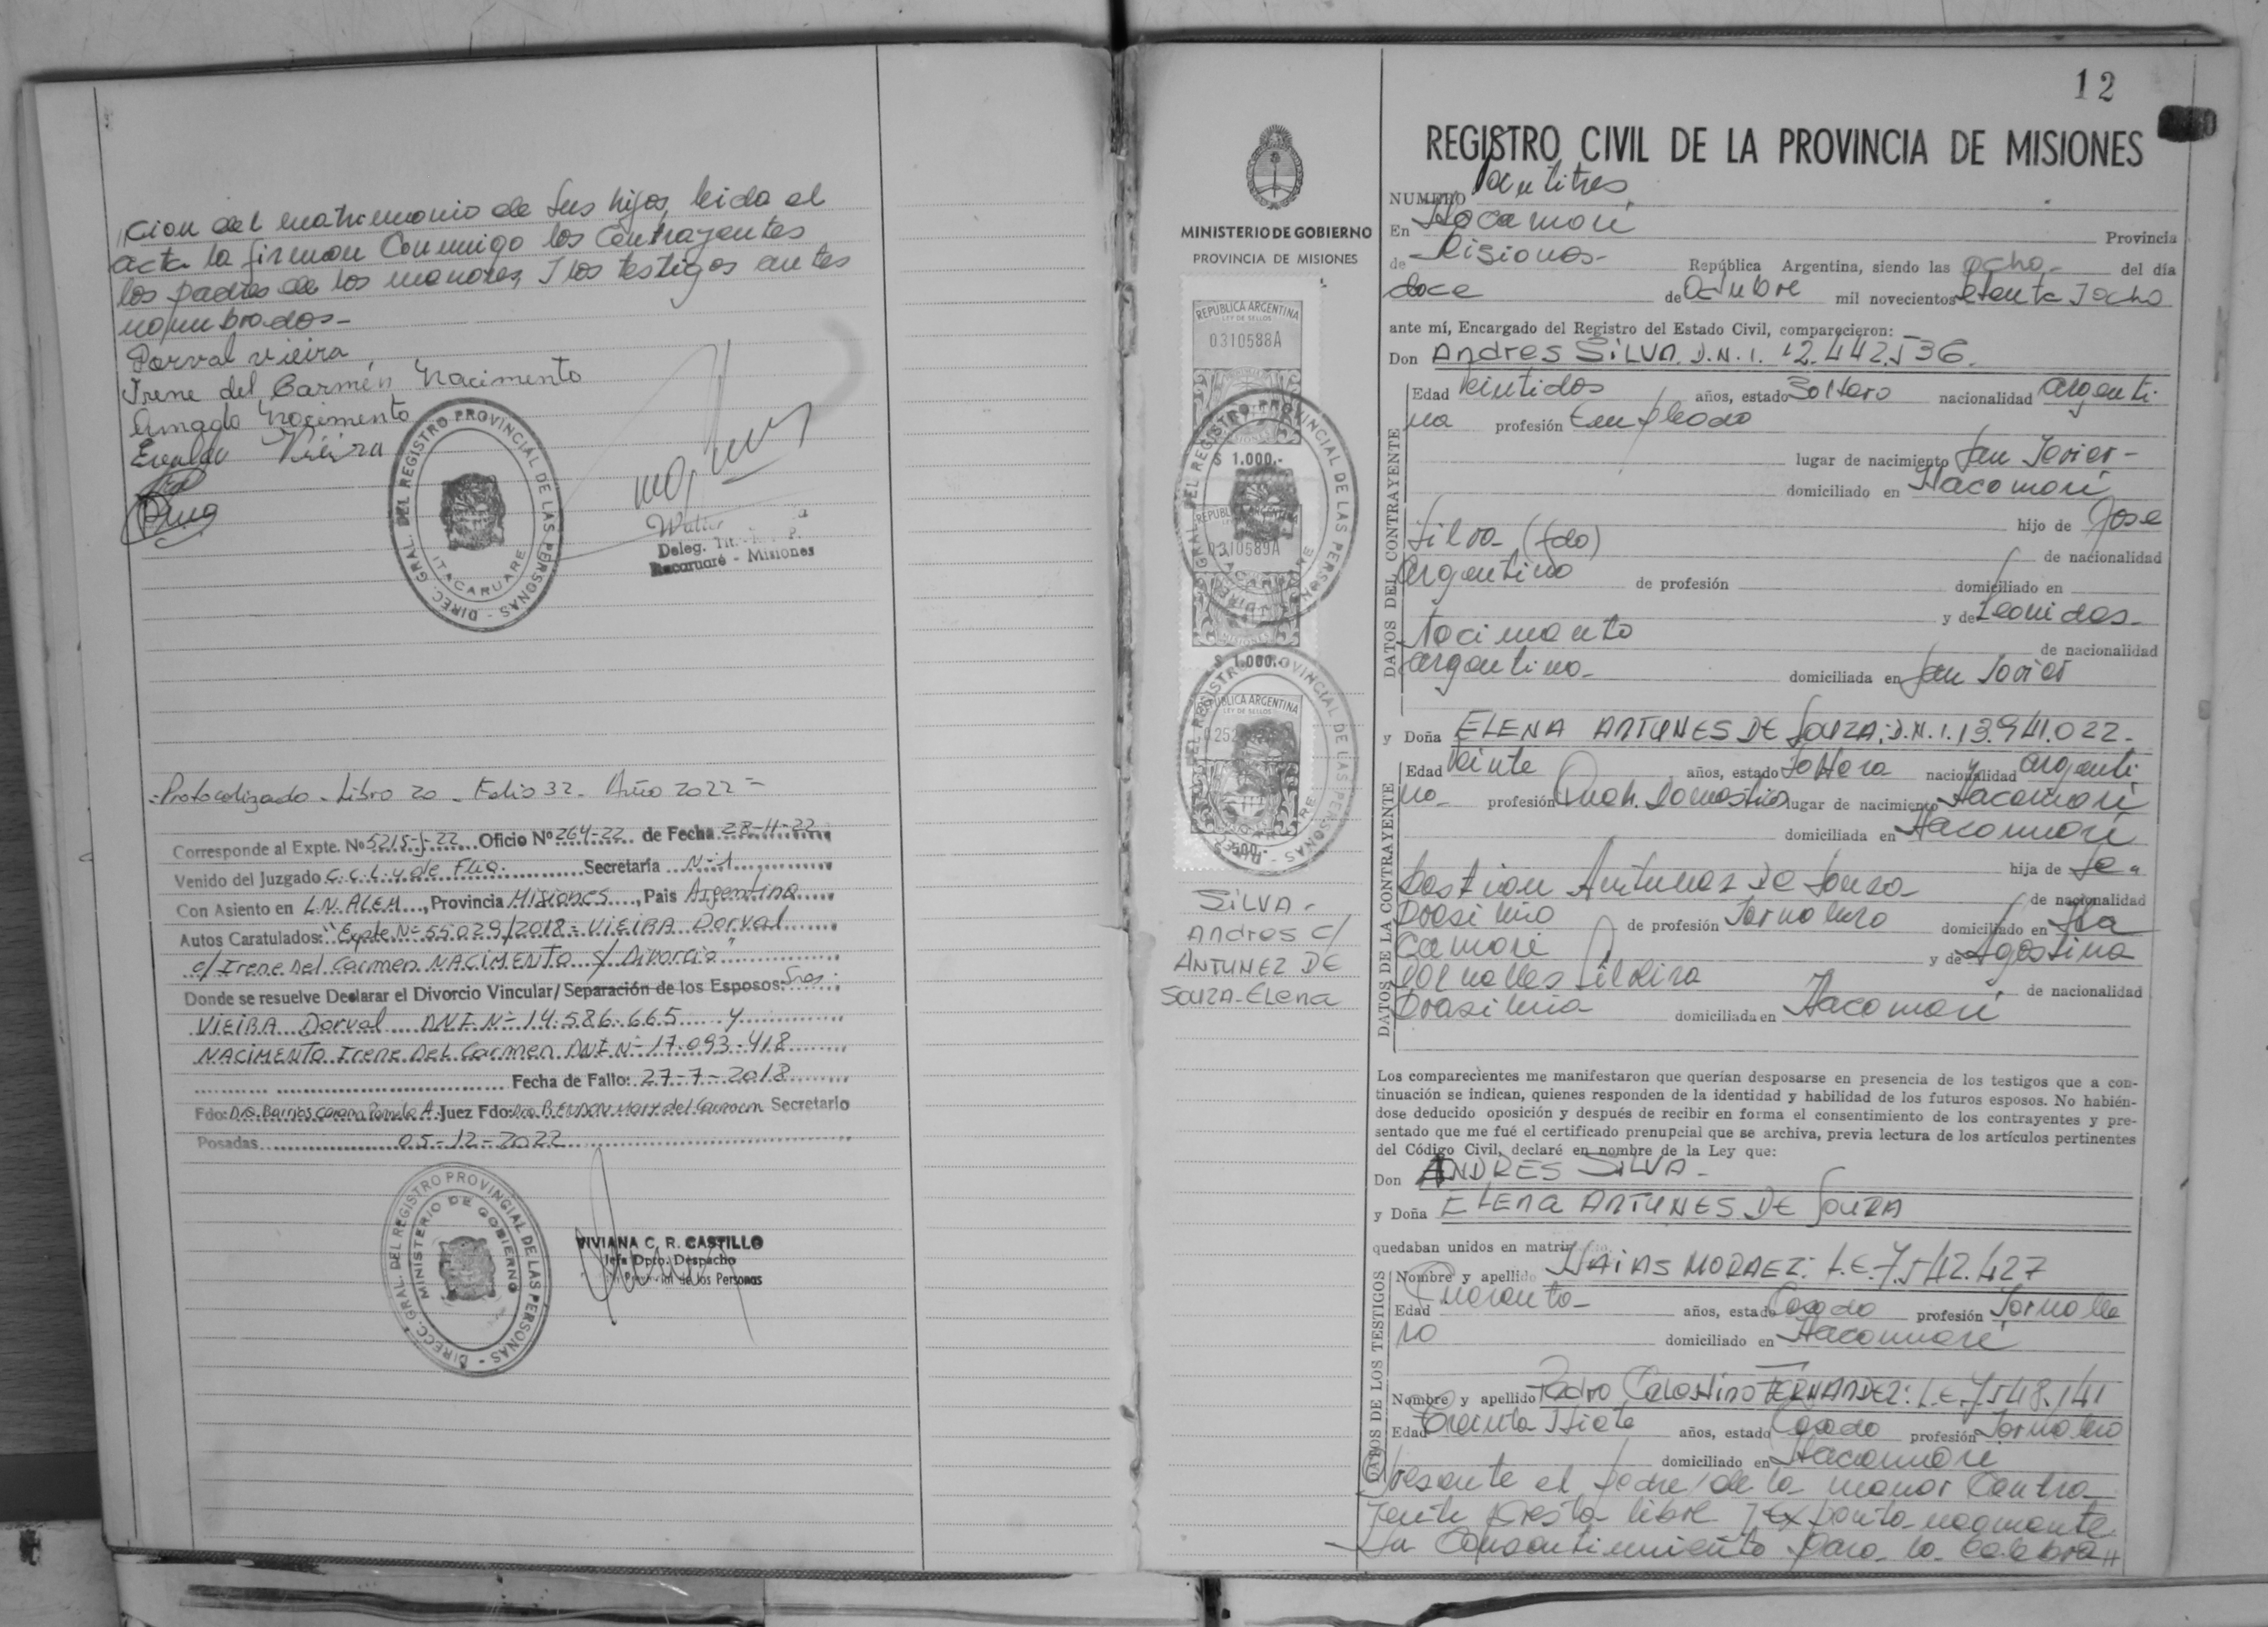 //cion del matrimonio de sus hijos, leida el
acta la firman Conmigo los Contrayentes
los padres de los menores, I los testigos antes
nombrados-
Dorval vieira
Irene del Carmen Nacimento
Amado Nacimento
Vieira
DIREC. GRAL. DEL REGISTRO PROVINCIAL DE LAS PERSONAS
ITACARUARE
Deleg. Tit.
Itacaruaré - Misiones
-Protocolizado - Libro 20 - Folio 32 - Año 2022 =
Corresponde al Expte. Nº 5215-J-22 Oficio Nº 264-22 de Fecha 28-11-22
Venido del Juzgado C.C.L. y de Flia. Secretaría N-1
Con Asiento en L.N. ALEM, Provincia Misiones, Pais Argentina
Autos Caratulados: "Expte Nº 55029/2018 = VIEIRA Dorval
c/ Irene Del Carmen NACIMENTO s/ Divorcio"
Donde se resuelve Declarar el Divorcio Vincular/Separación de los Esposos: Sres:
VIEIRA Dorval DNI Nº 14.586.665 y
NACIMENTO Irene Del Carmen DNI Nº 17.093.418
Fecha de Fallo: 27-7-2018
Fdo: Dra. Barrios Pamela A. Juez Fdo: Mary del Carmen Secretario
Posadas 05-12-2022
DIRECC. GRAL. DEL REGISTRO PROVINCIAL DE LAS PERSONAS
MINISTERIO DE GOBIERNO
VIVIANA C. R. CASTILLO
Jefa Dpto. Despacho
de las Personas
12
MINISTERIO DE GOBIERNO
PROVINCIA DE MISIONES
REPUBLICA ARGENTINA
LEY DE SELLOS
0310588A
$ 1.000.-
0310589A
$ 1.000.-
REPUBLICA ARGENTINA
LEY DE SELLOS
500.-
SILVA -
Andres C/
ANTUNEZ DE
SOUZA - Elena
REGISTRO CIVIL DE LA PROVINCIA DE MISIONES
NUMERO Veintitres
En Itacaruaré Provincia
de Misiones- República Argentina, siendo las ocho- del día
doce de Octubre mil novecientos setenta I ocho
ante mí, Encargado del Registro del Estado Civil, comparecieron:
Don Andres SILVA. D.N.I. 12.442.536.
Edad Veintidos años, estado Soltero nacionalidad argenti-
na profesión Empleado
lugar de nacimiento San Javier-
domiciliado en Itacaruaré
hijo de Jose
Silva (fdo)
de nacionalidad
argentino de profesión domiciliado en
y de Leonidas-
Nacimento
de nacionalidad
argentina- domiciliada en San Javier
y Doña ELENA ANTUNES DE SOUZA. D.N.I. 13.941.022-
Edad Veinte años, estado Soltera nacionalidad argenti-
na- profesión Queh. Domesticos lugar de nacimiento Itacaruaré
domiciliada en Itacaruaré
hija de Se-
bastian Antunez De Souza- de nacionalidad
brasileño de profesión Jornalero domiciliado en Ita
caruaré y de Agostina
Dornelles Silveira de nacionalidad
brasileña domiciliada en Itacaruaré
Los comparecientes me manifestaron que querían desposarse en presencia de los testigos que a con-
tinuación se indican, quienes responden de la identidad y habilidad de los futuros esposos. No habién-
dose deducido oposición y después de recibir en forma el consentimiento de los contrayentes y pre-
sentado que me fué el certificado prenupcial que se archiva, previa lectura de los artículos pertinentes
del Código Civil, declaré en nombre de la Ley que:
Don ANDRES SILVA-
y Doña ELENA ANTUNES DE SOUZA
quedaban unidos en matri
Nombre y apellido MORAEZ: L.E. 7.542.427
Edad Cuarenta- años, estado Casado profesión Jornale
ro domiciliado en Itacaruaré
Nombre y apellido Pedro Celestino FERNANDEZ: L.E. 7.548.141
Edad Treinta I siete años, estado Casado profesión Jornalero
domiciliado en Itacaruaré
Presente el padre de la menor Contra
yente presta libre I expontaneamente
Su Consentimiento para la celebra//
DATOS DEL CONTRAYENTE
DATOS DE LA CONTRAYENTE
DATOS DE LOS TESTIGOS